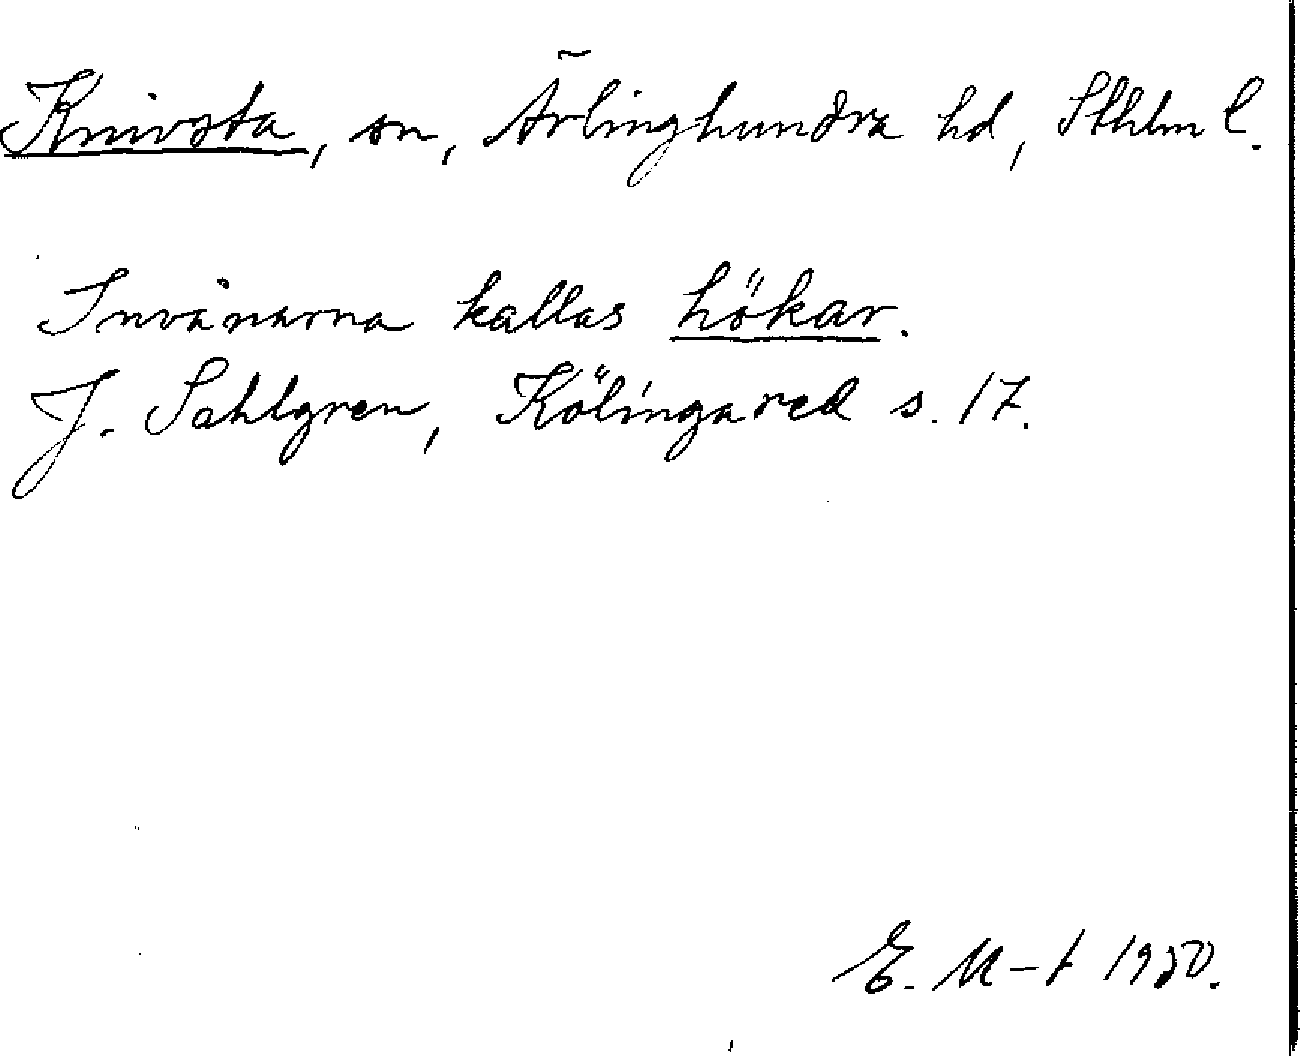 Knivsta, sn, Ärlinghundra hd, Sthlm l.
Invånarna kallas hökar.
J. Sahlgren, Kölingared s. 17.
E. M-t 1950.